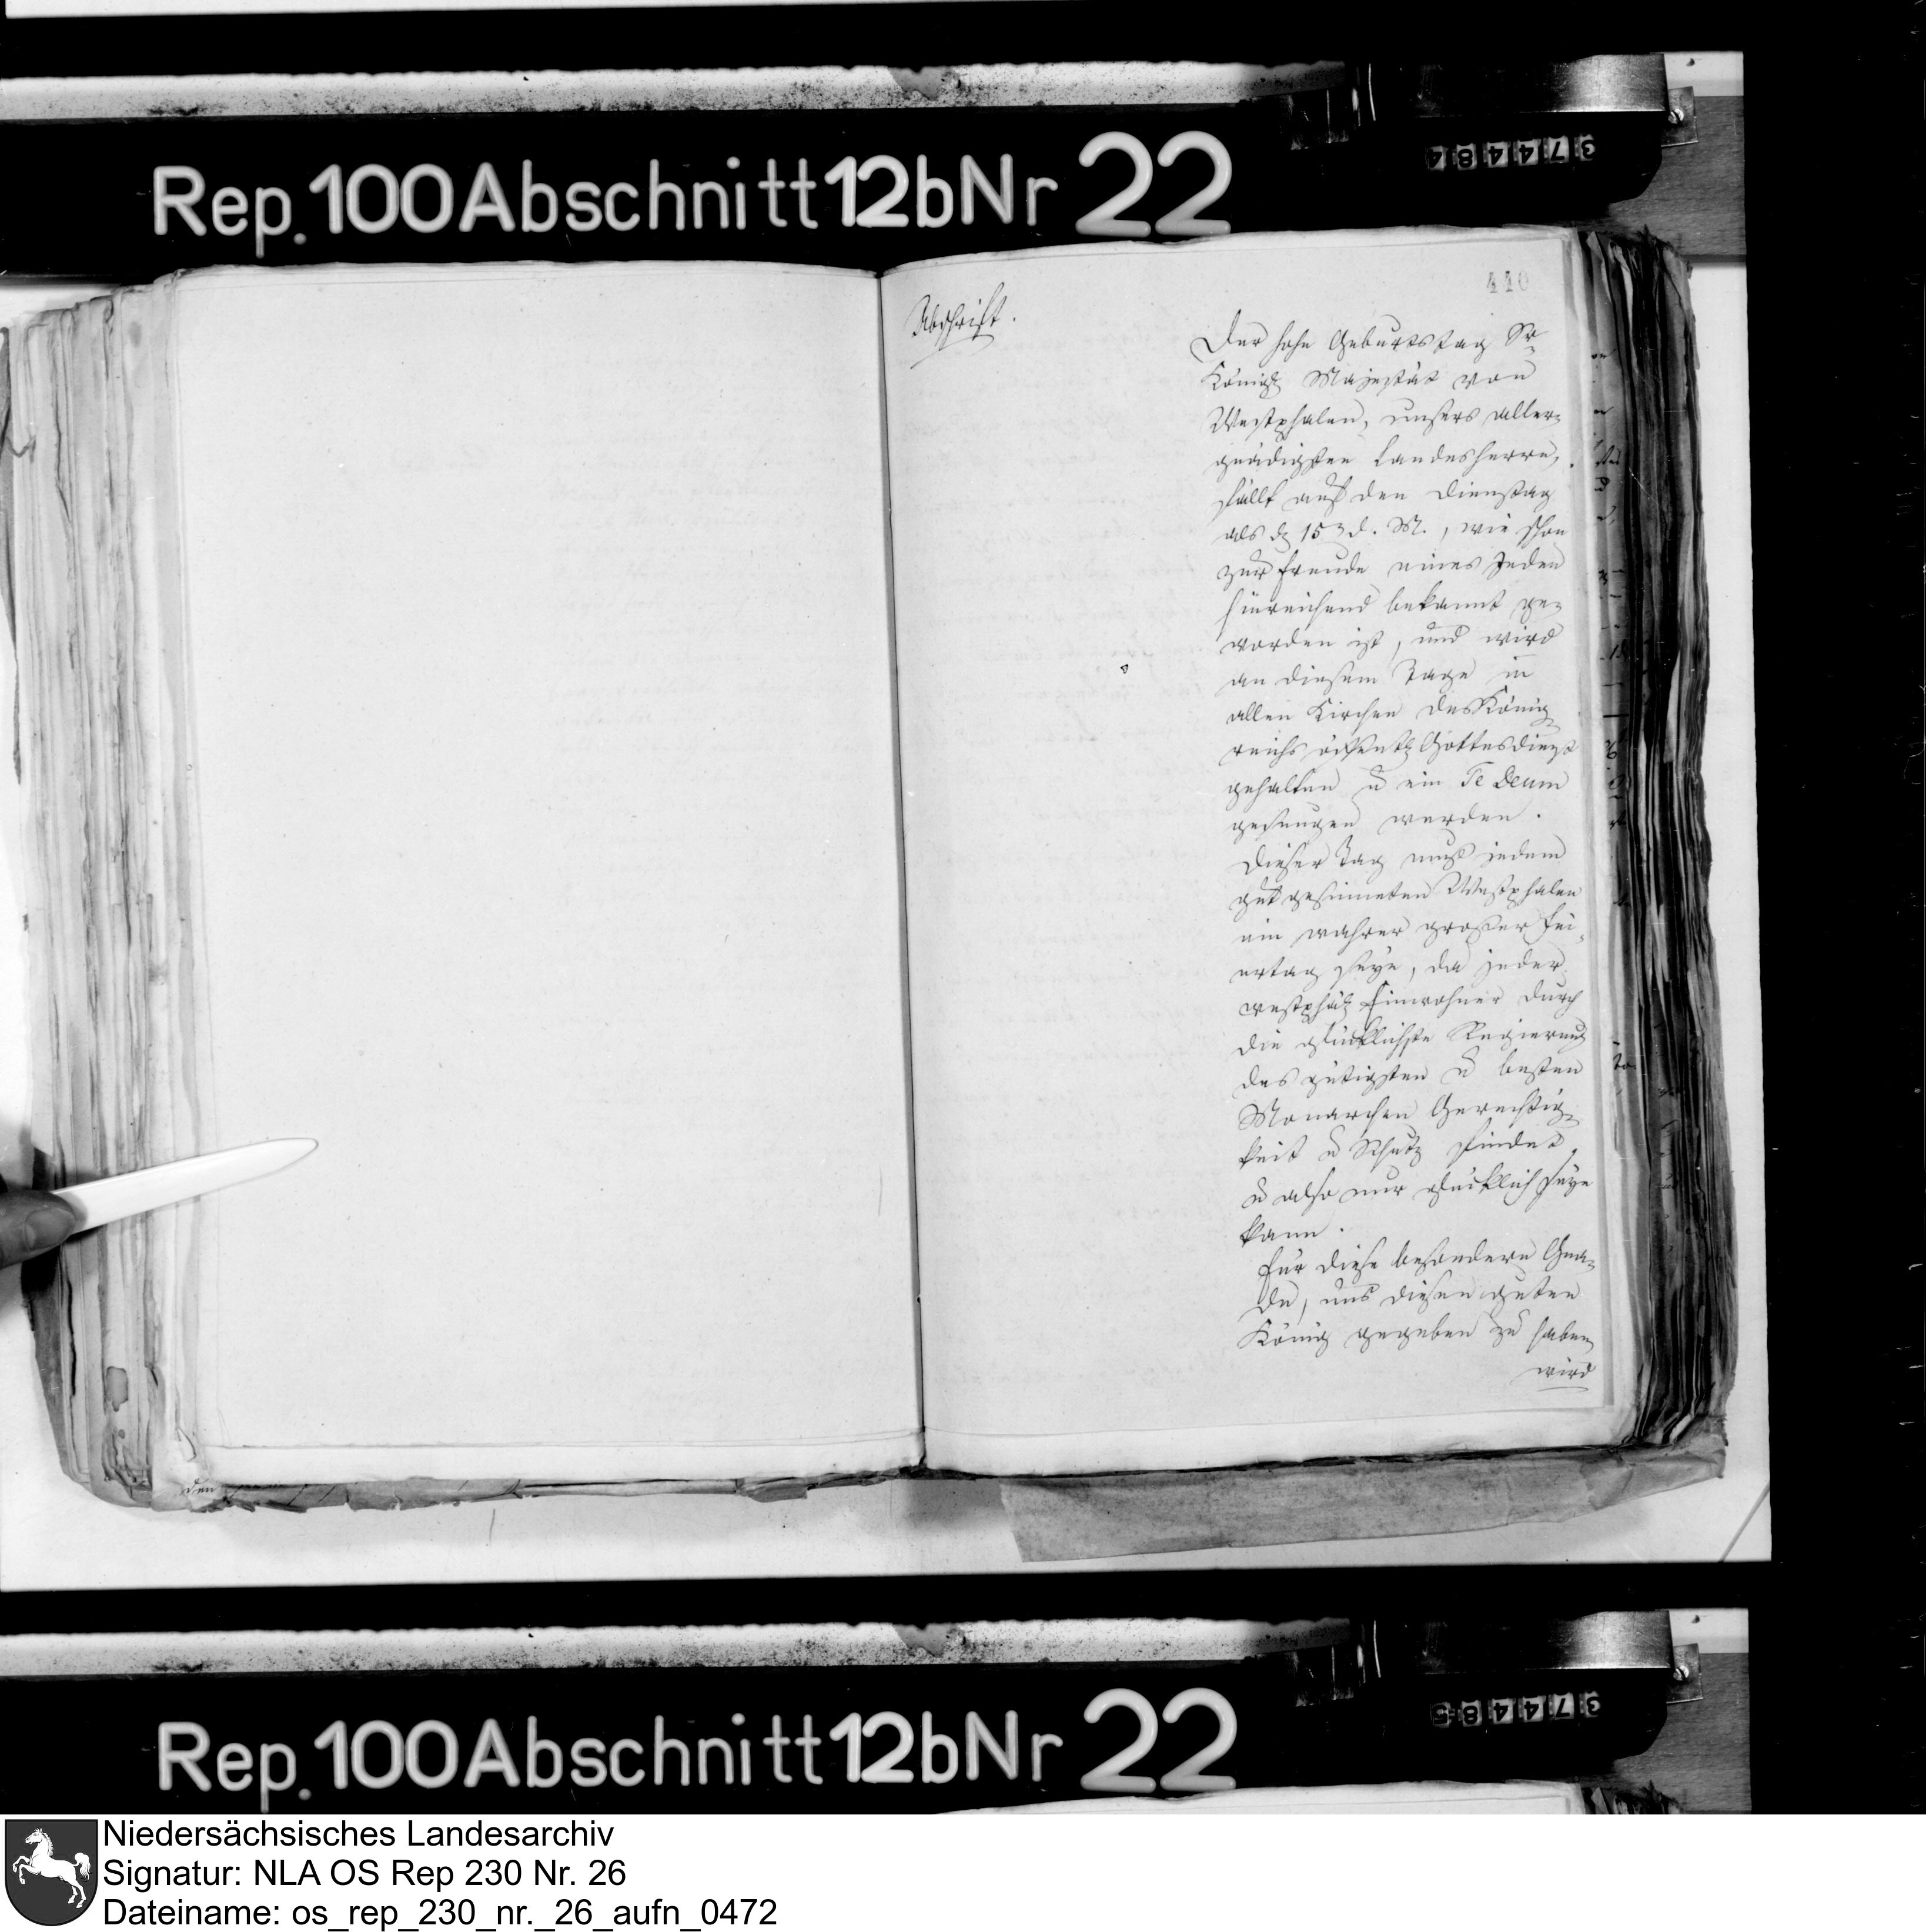 Rep. 100 Abschnitt 12b Nr 22
374484
440
Abschrift.
Der hohe Geburtstag Sr
Königl Majestät von
Westphalen, unsers aller-
gnädigsten Landesherrn,
fällt auf den Dienstag
als d 15 d. M., wie schon
zur Freude eines Jeden
hinreichend bekannt ge-
worden ist, und wird
an diesem Tage in
allen Kirchen des König
reichs öffentl Gottesdienst
gehalten u ein Te Deum
gesungen werden.
Dieser Tag muß jedem
gut gesinneten Westphalen
ein wahrer großer Fei-
ertag seyn, da jeder
westphäl Einwohner durch
die glücklichste Regierung
des gütigsten u besten
Monarchen Gerechtig-
keit u Schutz findet,
u also nur glücklich seyn
kann.
Für diese besondere Gna-
de, uns diesen guten
König gegeben zu haben
wird
den
Rep. 100 Abschnitt 12b Nr 22
374485
Niedersächsisches Landesarchiv
Signatur: NLA OS Rep 230 Nr. 26
Dateiname: os_rep_230_nr._26_aufn_0472